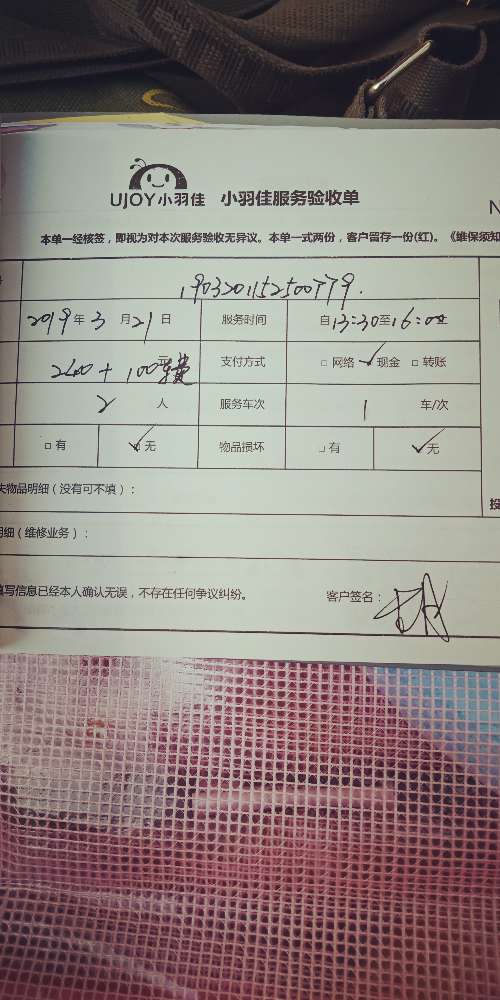 UJOY小羽佳 小羽佳服务验收单
N
本单一经核签，即视为对本次服务验收无异议。本单一式两份，客户留存一份(红)。《维保须知
2019年3月21日 服务时间 自13:30至16:00
2600+100 元 支付方式 □网络 ✓现金 □转账
2人 服务车次 1车/次
□有 ✓无 物品损坏 □有 ✓无
失物品明细（没有可不填）：
投
明细（维修业务）：
填写信息已经本人确认无误，不存在任何争议纠纷。 客户签名：